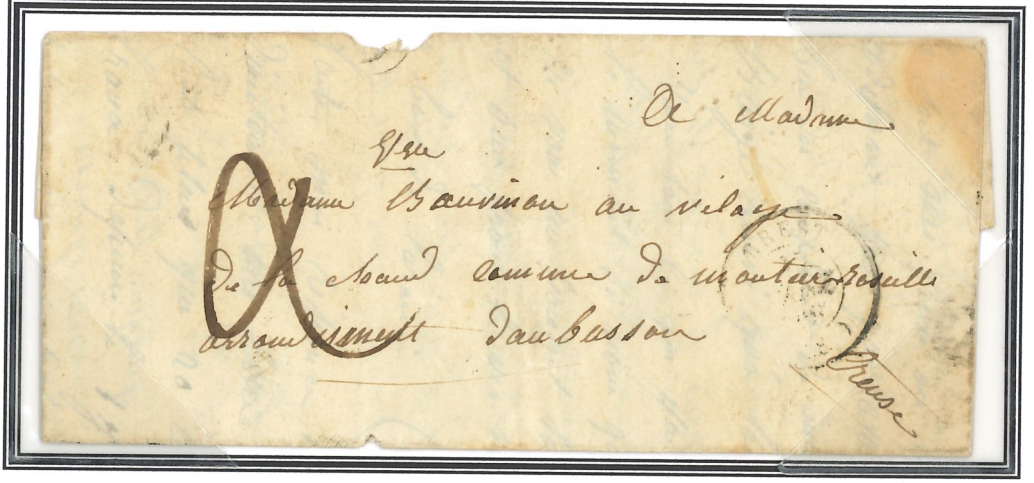 De Madame
Vve
Madame Chauvinon au vilage
De la Chaud commune de moutier roseille
arrondisment d'aubusson
Creuse
CREST
2